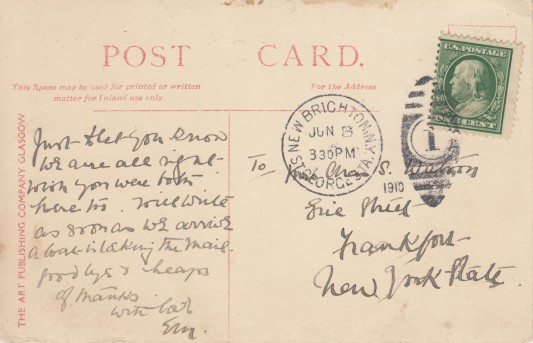 POST CARD.
This Space may be used for printed or written
matter for Inland use only.
For the Address
THE ART PUBLISHING COMPANY GLASGOW
U.S. POSTAGE
ONE CENT
NEW BRIGHTON, N.Y.
JUN 8
330PM
ST. GEORGE STA.
1
1910
Just to let you know
we are all right
wish you were both
here too. Will write
as soon as we arrive
a boat is taking the mail.
good bye & heaps
of thanks
with love
To Mr. Chas. S. Watson
Erie Street
Frankfort
New York State.